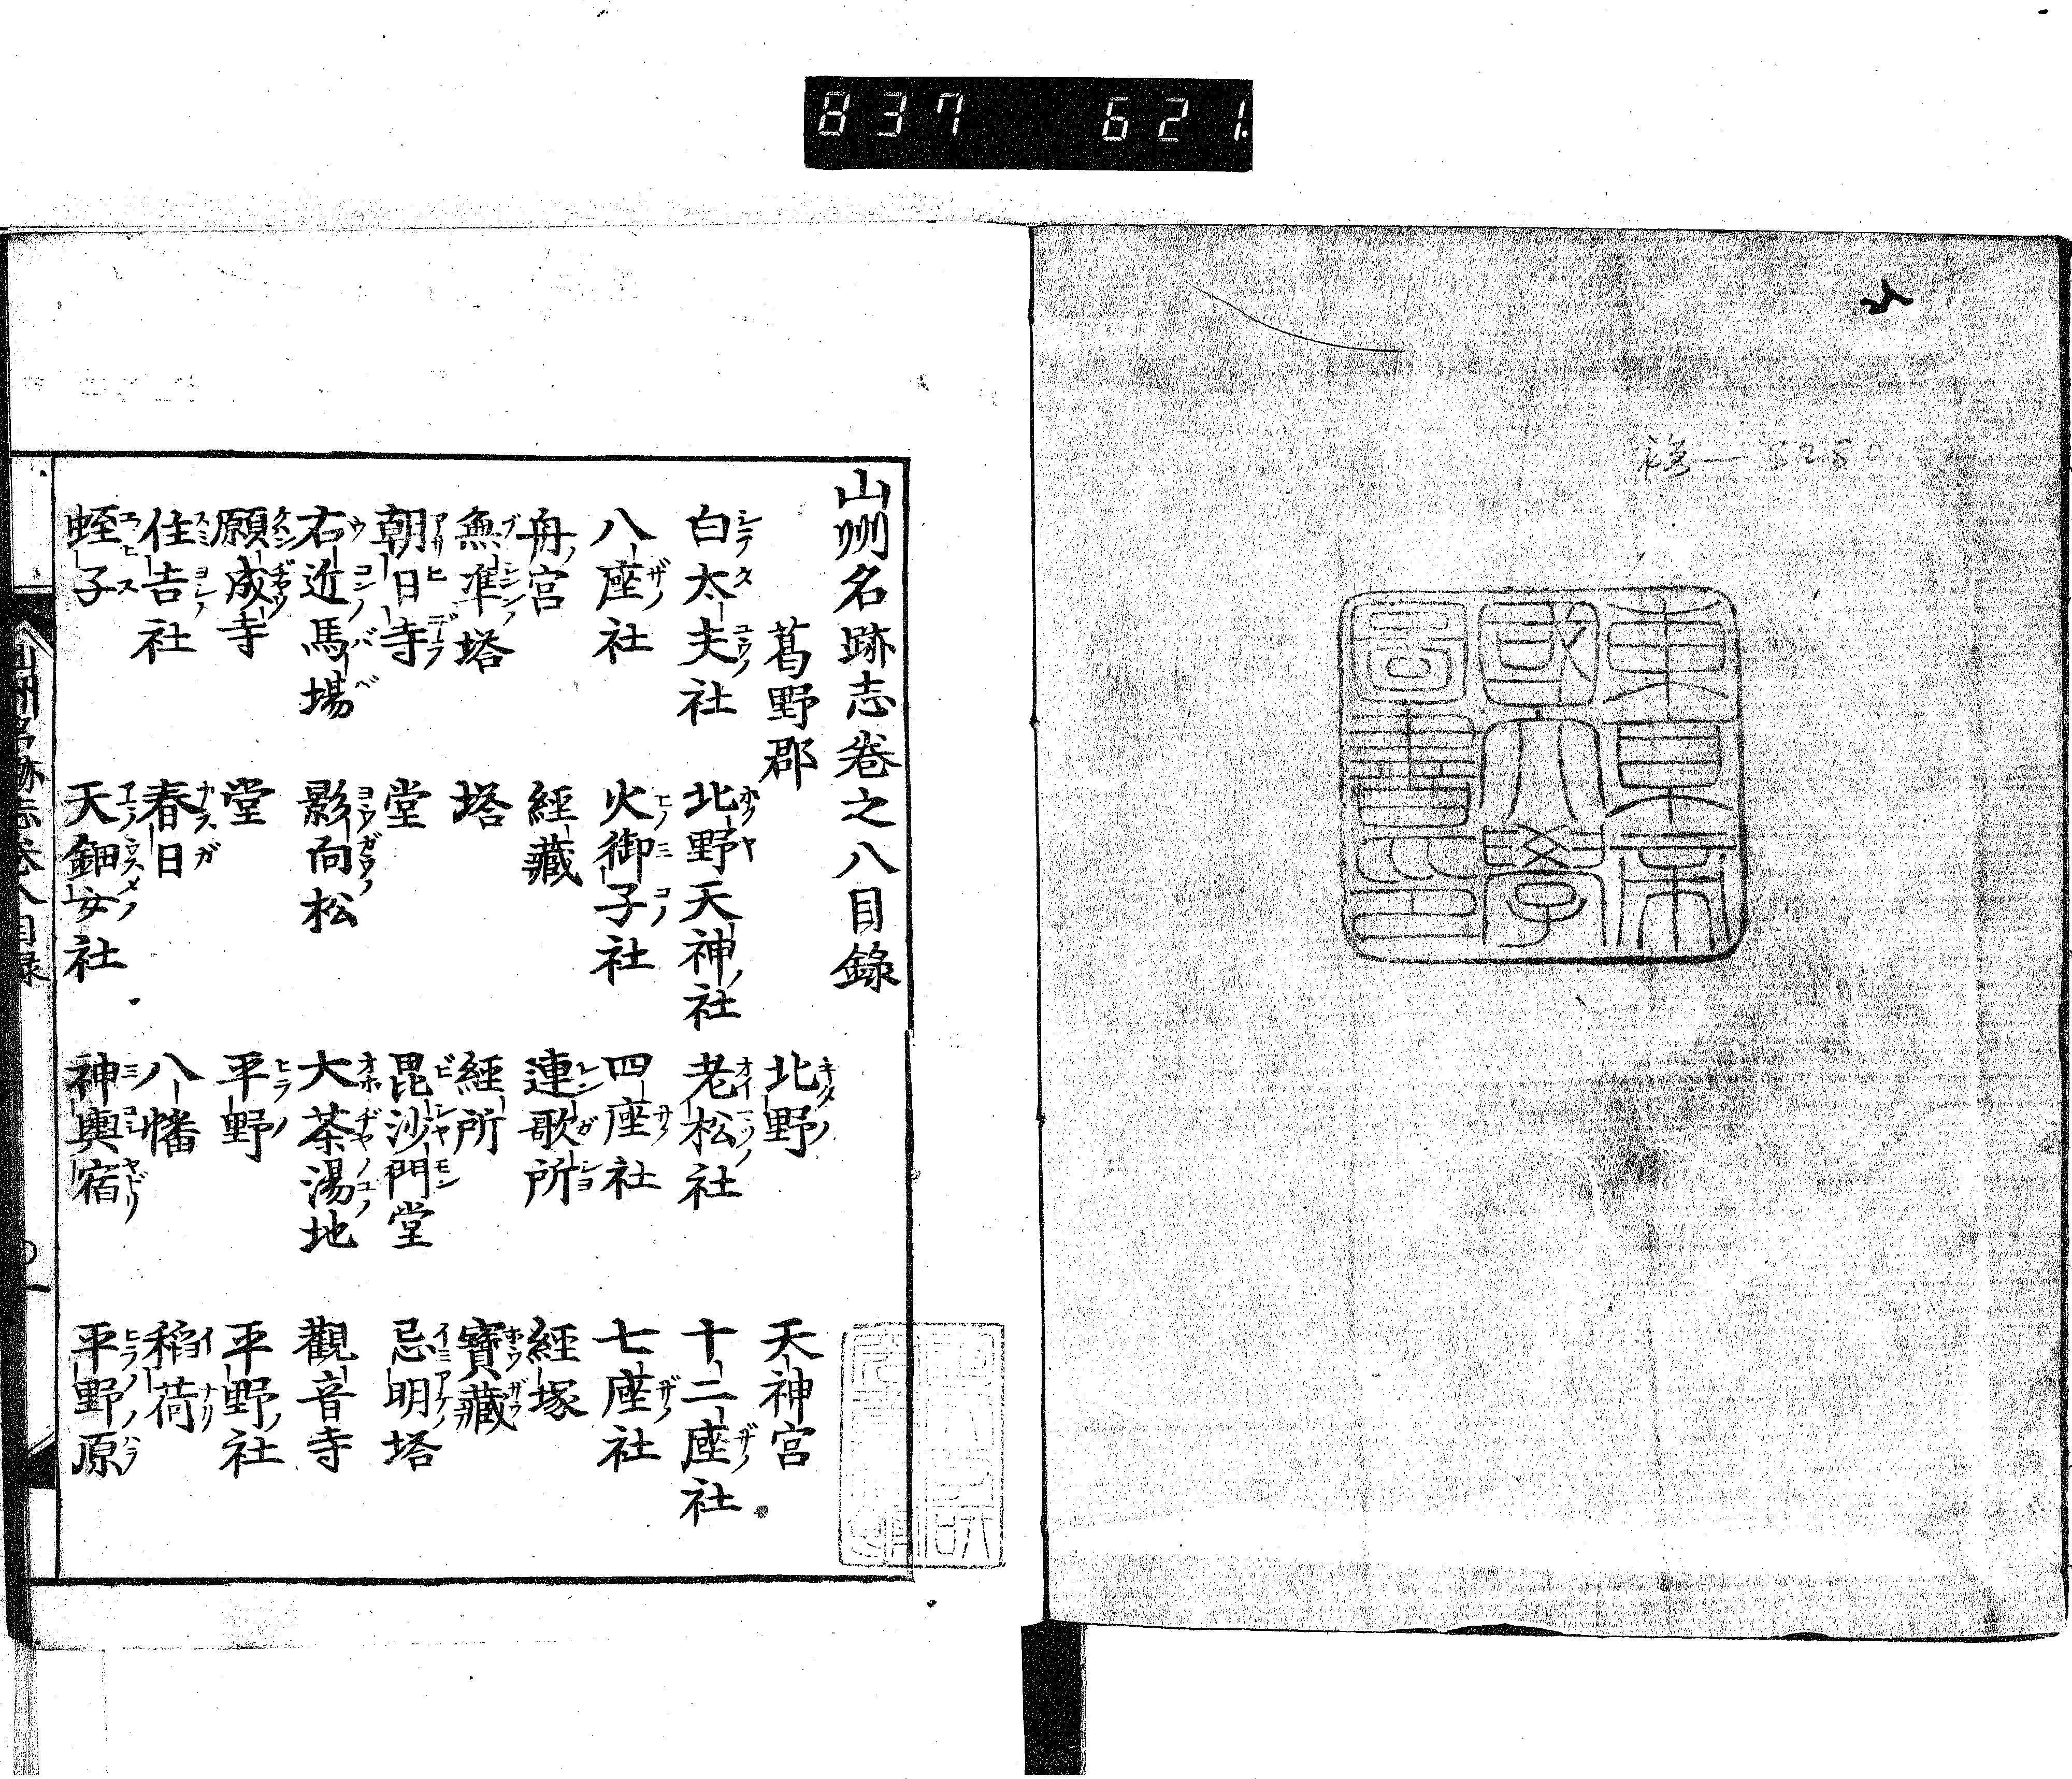 837 621.
東京帝
國大學
圖書印
山州名跡志卷之八目錄
葛野郡 北野 天神宮
白太夫社 北野天神社 老松社 十二座社
八座社 火御子社 四座社 七座社
舟宮 經藏 連歌所 經塚
無準塔 塔 經所 寶藏
朝日寺 堂 毘沙門堂 忌明塔
右近馬場 影向松 大茶湯地 觀音寺
願成寺 堂 平野 平野社
住吉社 春日 八幡 稻荷
蛭子 天鈿女社 神輿宿 平野原
山州名跡志卷八目録